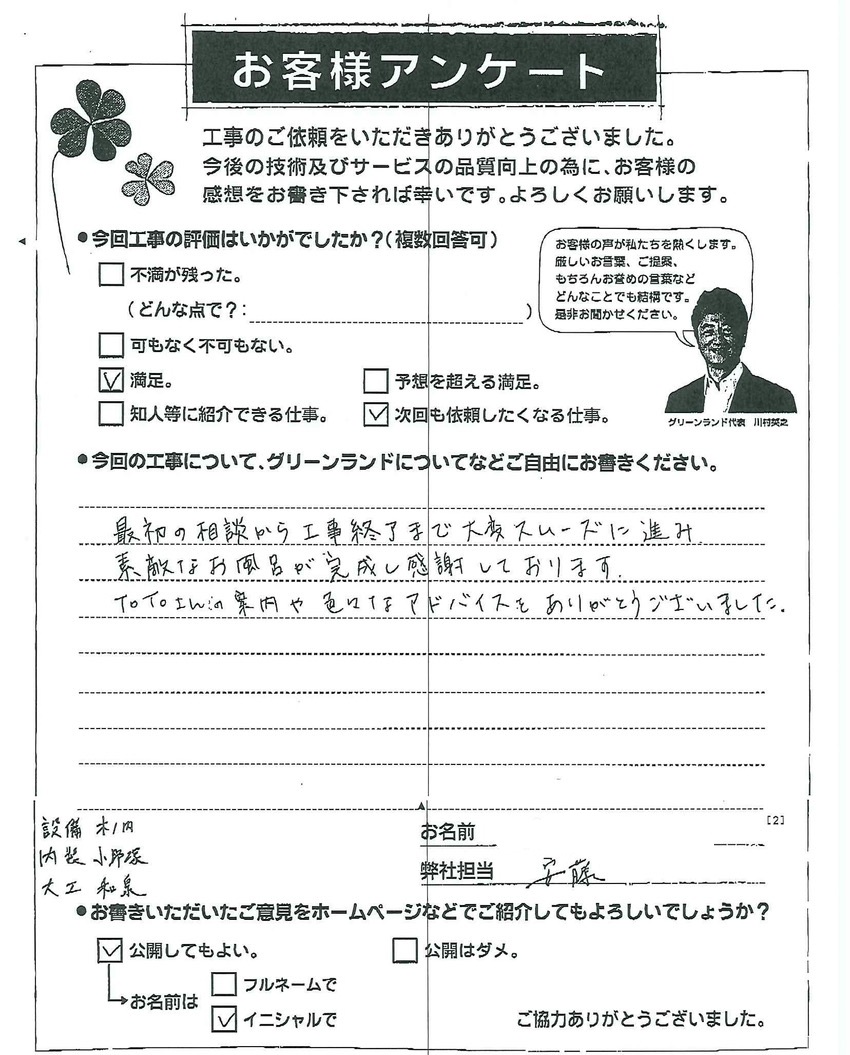 お客様アンケート
工事のご依頼をいただきありがとうございました。
今後の技術及びサービスの品質向上の為に、お客様の
感想をお書き下されば幸いです。よろしくお願いします。
●今回工事の評価はいかがでしたか？（複数回答可）
不満が残った。
（どんな点で？：　）
可もなく不可もない。
満足。
予想を超える満足。
知人等に紹介できる仕事。
次回も依頼したくなる仕事。
お客様の声が私たちを熱くします。
厳しいお言葉、ご提案、
もちろんお誉めの言葉など
どんなことでも結構です。
是非お聞かせください。
グリーンランド代表　川村英之
●今回の工事について、グリーンランドについてなどご自由にお書きください。
最初の相談から工事終了まで大変スムーズに進み
素敵なお風呂が完成し感謝しております。
案内や色々なアドバイスをありがとうございました。
[2]
設備 木ノ内
内装 小野塚
大工 和泉
お名前
弊社担当 安藤
●お書きいただいたご意見をホームページなどでご紹介してもよろしいでしょうか？
公開してもよい。
公開はダメ。
お名前は
フルネームで
イニシャルで
ご協力ありがとうございました。